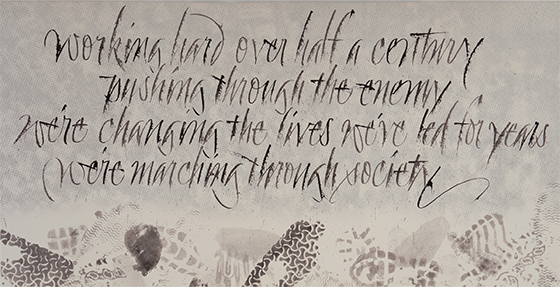 working hard over half a century
pushing through the enemy
we're changing the lives we've led for years
(we're marching through society